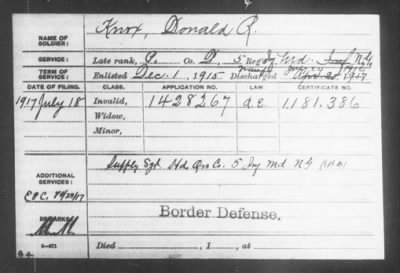 NAME OF SOLDIER: Knox, Donald R.
SERVICE: Late rank, P. Co. D, 5 Reg't Inf Md. Inf N.G
TERM OF SERVICE: Enlisted Dec. 1, 1915 Discharged 1917
DATE OF FILING. CLASS. APPLICATION NO. LAW CERTIFICATE NO.
1917 July 18 Invalid, 1428267 d.e. 1.181.386
Widow,
Minor,
ADDITIONAL SERVICES: Supply Sgt Hd Qrs Co. 5 Inf Md N G
REMARKS: Border Defense.
Died , 1 , at